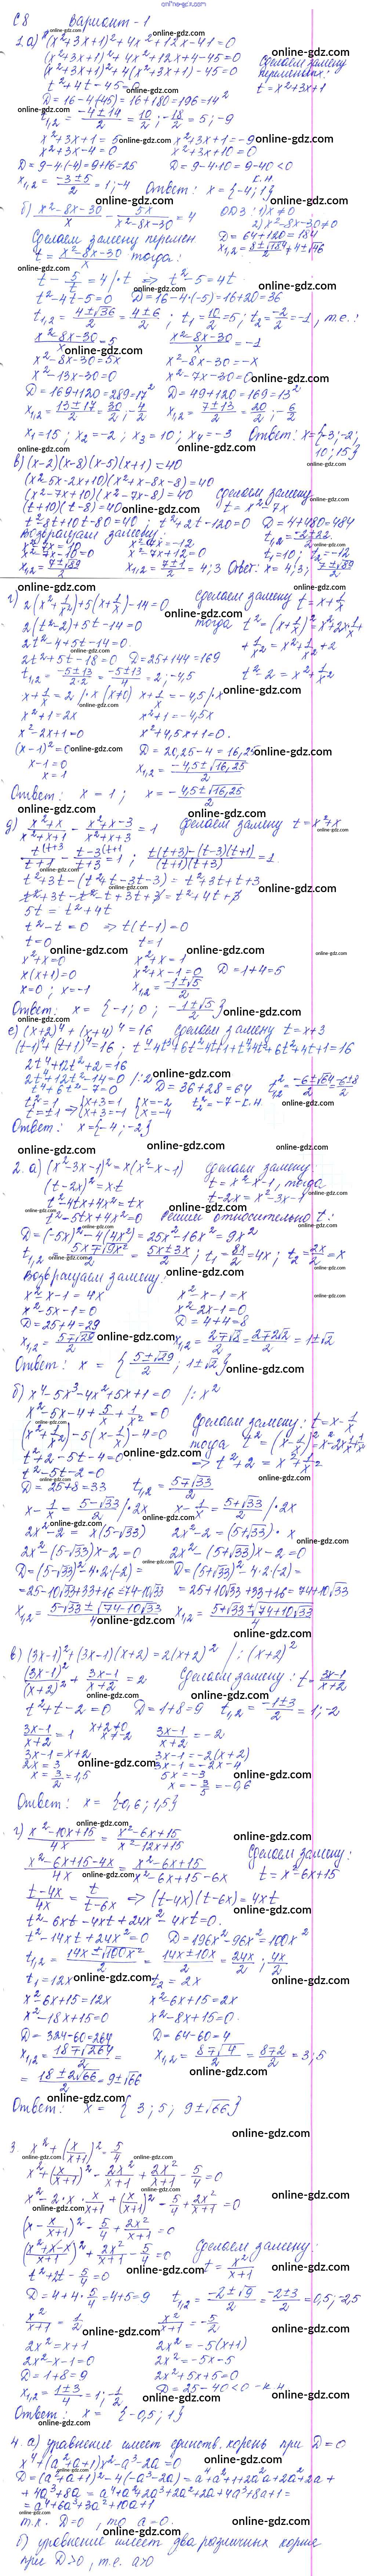 С8 Вариант - 1
1.а) (x²+3x+1)²+4x²+12x-41=0
(x²+3x+1)²+4x²+12x+4-45=0 Сделаем замену
(x²+3x+1)²+4(x²+3x+1)-45=0 переменных:
t²+4t-45=0 t=x²+3x+1
D=16-4(-45)=16+180=196=14²
t₁,₂=(-4±14)/2=10/2;-18/2=5;-9
x²+3x+1=5 x²+3x+1=-9
x²+3x-4=0 x²+3x+10=0
D=9-4(-4)=9+16=25 D=9-4·10=9-40<0
x₁,₂=(-3±5)/2=1;-4 к.н.
Ответ: x={-4;1}
б) (x²-8x-30)/x - 5x/(x²-8x-30)=4 ОДЗ: 1) x≠0
2) x²-8x-30≠0
Сделаем замену перемен D=64+120=184
t=(x²-8x-30)/x тогда: x₁,₂=(8±√184)/2≠4±√46
t-5/t=4/·t ⇒ t²-5=4t
t²-4t-5=0 D=16-4·(-5)=16+20=36
t₁,₂=(4±√36)/2=(4±6)/2; t₁=10/2=5; t₂=-2/2=-1, т.е.:
(x²-8x-30)/x=5 (x²-8x-30)/x=-1
x²-8x-30=5x x²-8x-30=-x
x²-13x-30=0 x²-7x-30=0
D=169+120=289=17² D=49+120=169=13²
x₁,₂=(13±17)/2=30/2;-4/2 x₁,₂=(7±13)/2=20/2;-6/2
x₁=15; x₂=-2; x₃=10; x₄=-3 Ответ: x={-3;-2;
10;15}
в) (x-2)(x-8)(x-5)(x+1)=-40
(x²-5x-2x+10)(x²+x-8x-8)=-40
(x²-7x+10)(x²-7x-8)=-40 Сделаем замену
(t+10)(t-8)=-40 t=x²-7x
t²-8t+10t-80=-40; t²+2t-120=0 D=4+480=484
Возвращаем замену: t₁,₂=(-2±22)/2
x²-7x=10 x²-7x=-12
x²-7x-10=0 x²-7x+12=0 t₁=10; t₂=-12
x₁,₂=(7±√89)/2 x₁,₂=(7±1)/2=4;3 Ответ: x=4;3;(7±√89)/2
г) 2(x²+1/x²)+5(x+1/x)-14=0 Сделаем замену t=x+1/x
2(t²-2)+5t-14=0 тогда t²=(x+1/x)²=x²+2x·1/x+
2t²-4+5t-14=0 +1/x²=x²+1/x²+2
2t²+5t-18=0 D=25+144=169 t²-2=x²+1/x²
t₁,₂=(-5±13)/2·2=(-5±13)/4=2;-4,5
x+1/x=2/·x (x≠0) x+1/x=-4,5/·x
x²+1=2x x²+1=-4,5x
x²-2x+1=0 x²+4,5x+1=0.
(x-1)²=0 D=20,25-4=16,25
x-1=0 x₁,₂=(-4,5±√16,25)/2
x=1
Ответ: x=1; x=(-4,5±√16,25)/2
д) (x²+x)/(x²+x+1) - (x²+x-3)/(x²+x+3)=1 Сделаем замену t=x²+x
t/(t+1) - (t-3)/(t+3)=1; (t(t+3)-(t-3)(t+1))/((t+1)(t+3))=1
t²+3t-(t²+t-3t-3)=t²+3t+t+3
t²+3t-t²-t+3t+3=t²+4t+3
5t=t²+4t
t²-t=0 ⇒ t(t-1)=0
t=0 t=1
x²+x=0 x²+x=1
x(x+1)=0 x²+x-1=0 D=1+4=5
x=0; x=-1 x₁,₂=(-1±√5)/2
Ответ: x={-1;0;(-1±√5)/2}
е) (x+2)⁴+(x+4)⁴=16 Сделаем замену t=x+3
(t-1)⁴+(t+1)⁴=16; t⁴-4t³+6t²-4t+1+t⁴+4t³+6t²+4t+1=16
2t⁴+12t²+2=16
2t⁴+12t²-14=0 /:2
t⁴+6t²-7=0 D=36+28=64 t²₁,₂=(-6±√64)/2=(-6±8)/2
t²=1 {x+3=1 {x=-2 t₂²=-7-к.н.
t=±1 {x+3=-1 {x=-4
Ответ: x={-4;-2}
2. а) (x²-3x-1)²=x(x²-x-1) Сделаем замену:
(t-2x)²=x·t t=x²-x-1, тогда
t²-4tx+4x²=tx t-2x=x²-3x-1
t²-5tx+4x²=0 Решим относительно t:
D=(-5x)²-4(4x²)=25x²-16x²=9x²
t₁,₂=(5x∓√9x²)/2=(5x±3x)/2; t₁=8x/2=4x; t₂=2x/2=x
Возвращаем замену:
x²-x-1=4x x²-x-1=x
x²-5x-1=0 x²-2x-1=0
D=25+4=29 D=4+4=8
x₁,₂=(5∓√29)/2 x₁,₂=(2∓√8)/2=(2∓2√2)/2=1±√2
Ответ: x={(5±√29)/2; 1±√2}
б) x⁴-5x³-4x²+5x+1=0 /:x²
x²-5x-4+5/x+1/x²=0 Сделаем замену: t=x-1/x
(x²+1/x²)-5(x-1/x)-4=0 тогда t²=(x-1/x)²=x²-2x·1/x+1/x²
t²+2-5t-4=0 ⇒ t²+2=x²+1/x²
t²-5t-2=0
D=25+8=33 t₁,₂=(5∓√33)/2
x-1/x=(5-√33)/2 /·2x x-1/x=(5+√33)/2 /·2x
2x²-2=x(5-√33) 2x²-2=(5+√33)·x
2x²-(5-√33)x-2=0 2x²-(5+√33)x-2=0
D=(5-√33)²-4·2·(-2)= D=(5+√33)²-4·2·(-2)=
=25-10√33+33+16=74-10√33 =25+10√33+33+16=74+10√33
x₁,₂=(5-√33±√(74-10√33))/4 x₁,₂=(5+√33±√(74+10√33))/4
в) (3x-1)²+(3x-1)(x+2)=2(x+2)² /:(x+2)²
(3x-1)²/(x+2)²+(3x-1)/(x+2)=2 Сделаем замену: t=(3x-1)/(x+2)
t²+t-2=0 D=1+8=9 t₁,₂=(-1±3)/2=1;-2
(3x-1)/(x+2)=1 x+2≠0 (3x-1)/(x+2)=-2
x≠-2
3x-1=x+2 3x-1=-2(x+2)
2x=3 3x-1=-2x-4
x=3/2=1,5 5x=-3
x=-3/5=-0,6
Ответ: x={-0,6;1,5}
г) (x²-10x+15)/4x=(x²-6x+15)/(x²-12x+15)
Сделаем замену:
(x²-6x+15-4x)/4x=(x²-6x+15)/(x²-6x+15-6x) t=x²-6x+15
(t-4x)/4x=t/(t-6x) ⇒ (t-4x)(t-6x)=4xt
t²-6xt-4xt+24x²-4xt=0.
t²-14xt+24x²=0 D=196x²-96x²=100x²
t₁,₂=(14x±√100x²)/2=(14x±10x)/2=24x/2;4x/2
t₁=12x t₂=2x
x²-6x+15=12x x²-6x+15=2x
x²-18x+15=0 x²-8x+15=0.
D=324-60=264 D=64-60=4
x₁,₂=(18∓√264)/2= x₁,₂=(8∓√4)/2=(8∓2)/2=3;5
=(18±2√66)/2=9±√66
Ответ: x={3;5;9±√66}
3. x²+(x/(x+1))²=5/4
x²+(x/(x+1))²-2x²/(x+1)+2x²/(x+1)-5/4=0
x²-2·x·x/(x+1)+(x/(x+1))²-5/4+2x²/(x+1)=0
(x-x/(x+1))²-5/4+2x²/(x+1)=0
((x²+x-x)/(x+1))²+2x²/(x+1)-5/4=0 Сделаем замену:
t²+2t-5/4=0 t=x²/(x+1)
D=4+4·5/4=4+5=9 t₁,₂=(-2±√9)/2=(-2±3)/2=0,5;-2,5
x²/(x+1)=1/2 x²/(x+1)=-5/2
2x²=x+1 2x²=-5(x+1)
2x²-x-1=0 2x²=-5x-5
D=1+8=9 2x²+5x+5=0
x₁,₂=(1±3)/4=1;-1/2 D=25-40<0-к.н.
Ответ: x={-0,5;1}
4. а) уравнение имеет единств. корень при D=0
x⁴+(a²+a+1)x²-a³-2a=0
D=(a²+a+1)²-4(-a³-2a)=a⁴+a²+1+2a³+2a²+2a+
+4a³+8a=a⁴+a²+2a³+2a²+2a+4a³+8a+1=
=a⁴+6a³+3a²+10a+1
т.к. D=0, то a=0.
б) уравнение имеет два различных корня
при D>0, т.е. a>0